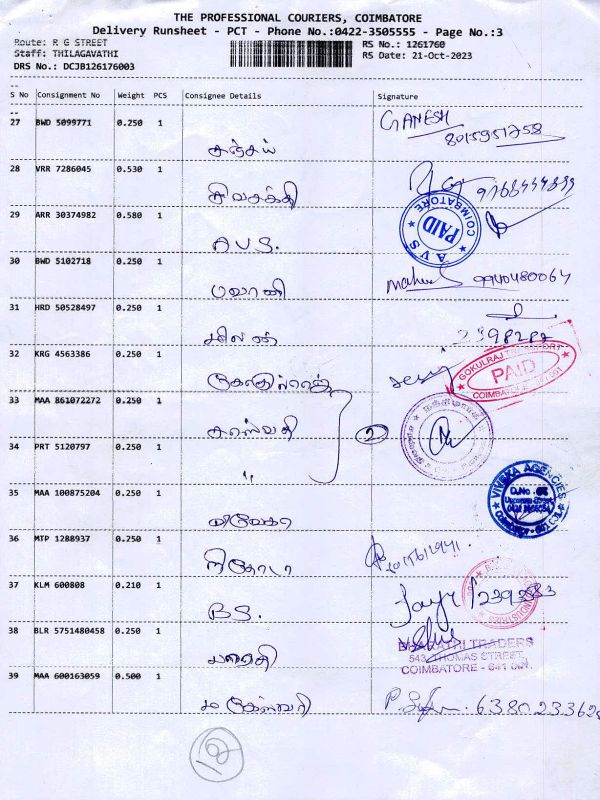 THE PROFESSIONAL COURIERS, COIMBATORE
Delivery Runsheet - PCT - Phone No.:0422-3505555 - Page No.:3
Route: R G STREET RS No.: 1261760
Staff: THILAGAVATHI RS Date: 21-Oct-2023
DRS No.: DCJB126176003
S No Consignment No Weight PCS Consignee Details Signature
27 BWD 5099771 0.250 1 சஞ்சய் GANESH
8015951758
28 VRR 7286045 0.530 1 சிவசக்தி
29 ARR 30374982 0.580 1 A.V.S.
AVS PAID COIMBATORE
30 BWD 5102718 0.250 1 பவானி 9940480064
31 HRD 50528497 0.250 1 2398282
32 KRG 4563386 0.250 1
GOKULRAJ PAID COIMBATORE
33 MAA 861072272 0.250 1 சரஸ்வதி 2
34 PRT 5120797 0.250 1 "
35 MAA 100875204 0.250 1 விவேகா
VIVEKA AGENCIES
36 MTP 1288937 0.250 1
37 KLM 600808 0.210 1 B.S.
38 BLR 5751480458 0.250 1 பாரதி
BHARATHI TRADERS
543, THOMAS STREET,
COIMBATORE - 641 001.
39 MAA 600163059 0.500 1 மகேஸ்வரி